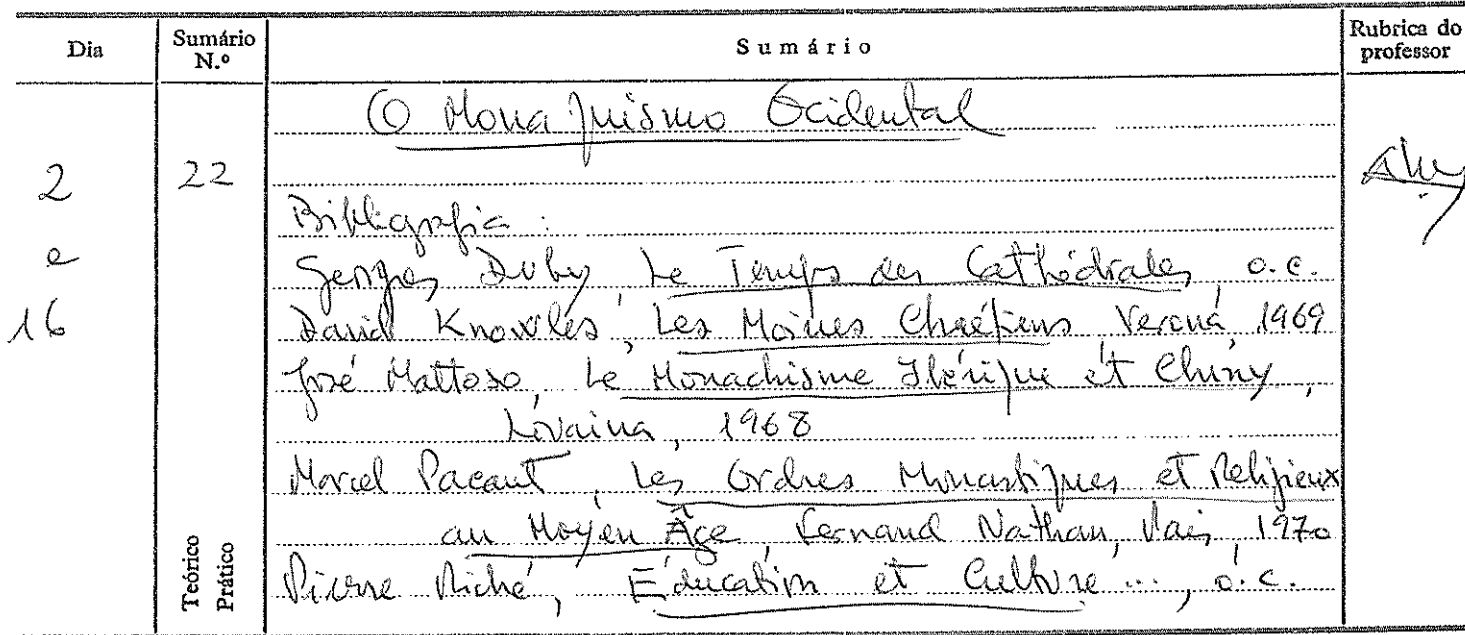 Dia
Sumário N.º
Sumário
Rubrica do professor
O Monaquismo Ocidental
2 22
Bibliografia:
e Georges Duby, Le Temps des Cathédrales, o.c.
16 David Knowles, Les Moines Chrétiens, Verona, 1969
José Mattoso, Le Monachisme Ibérique et Cluny,
Lovaina, 1968
Marcel Pacaut, Les Ordres Monastiques et Religieux
au Moyen Âge, Fernand Nathan, Paris, 1970
Pierre Riché, Éducation et Culture..., o.c.
Teórico
Prático